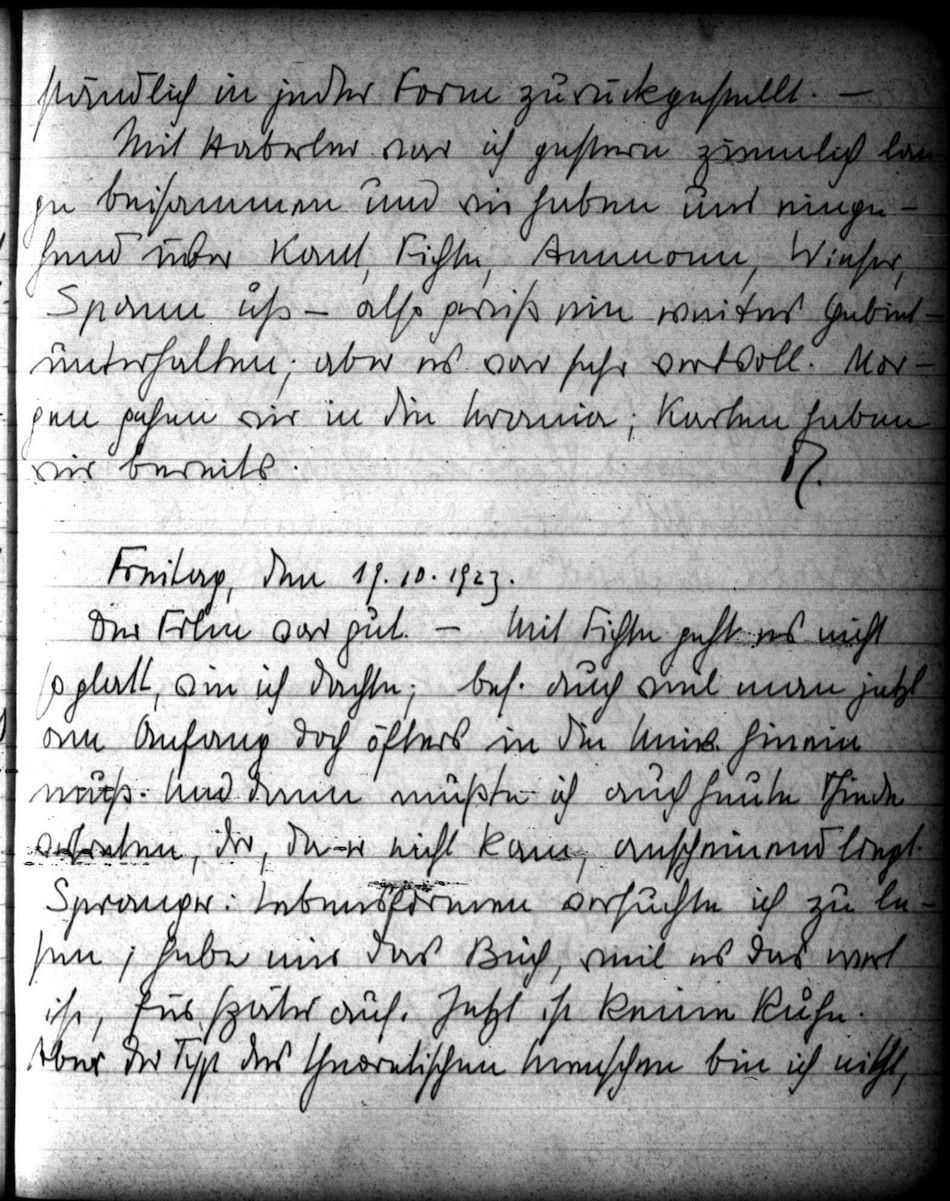 ständlich in jeder Form zurückgestellt. —
Mit Haberler war ich gestern ziemlich lan-
ge beisammen und wir haben uns einge-
hend über Kant, Fichte, Ammonn, Wieser,
Spann usf. – also gewiß ein weites Gebiet –
unterhalten; aber es war sehr wertvoll. Mor-
gen gehen wir in die Urania; Karten haben
wir bereits.
Freitag, den 19.10.1923.
Der Film war gut. – Mit Fichte geht es nicht
so glatt, wie ich dachte; bes. auch weil man jetzt
am Anfang doch öfters in die Univ. hinein
muß. Und dann mußte ich auch heute Thiede
vertreten, der, da er nicht kam, anscheinend liegt.
Spranger: Lebensformen versuchte ich zu le-
sen; hebe mir das Buch, weil es das wert
ist, für später auf. Jetzt ist keine Ruhe.
Aber der Typ des theoretischen Menschen bin ich nicht,